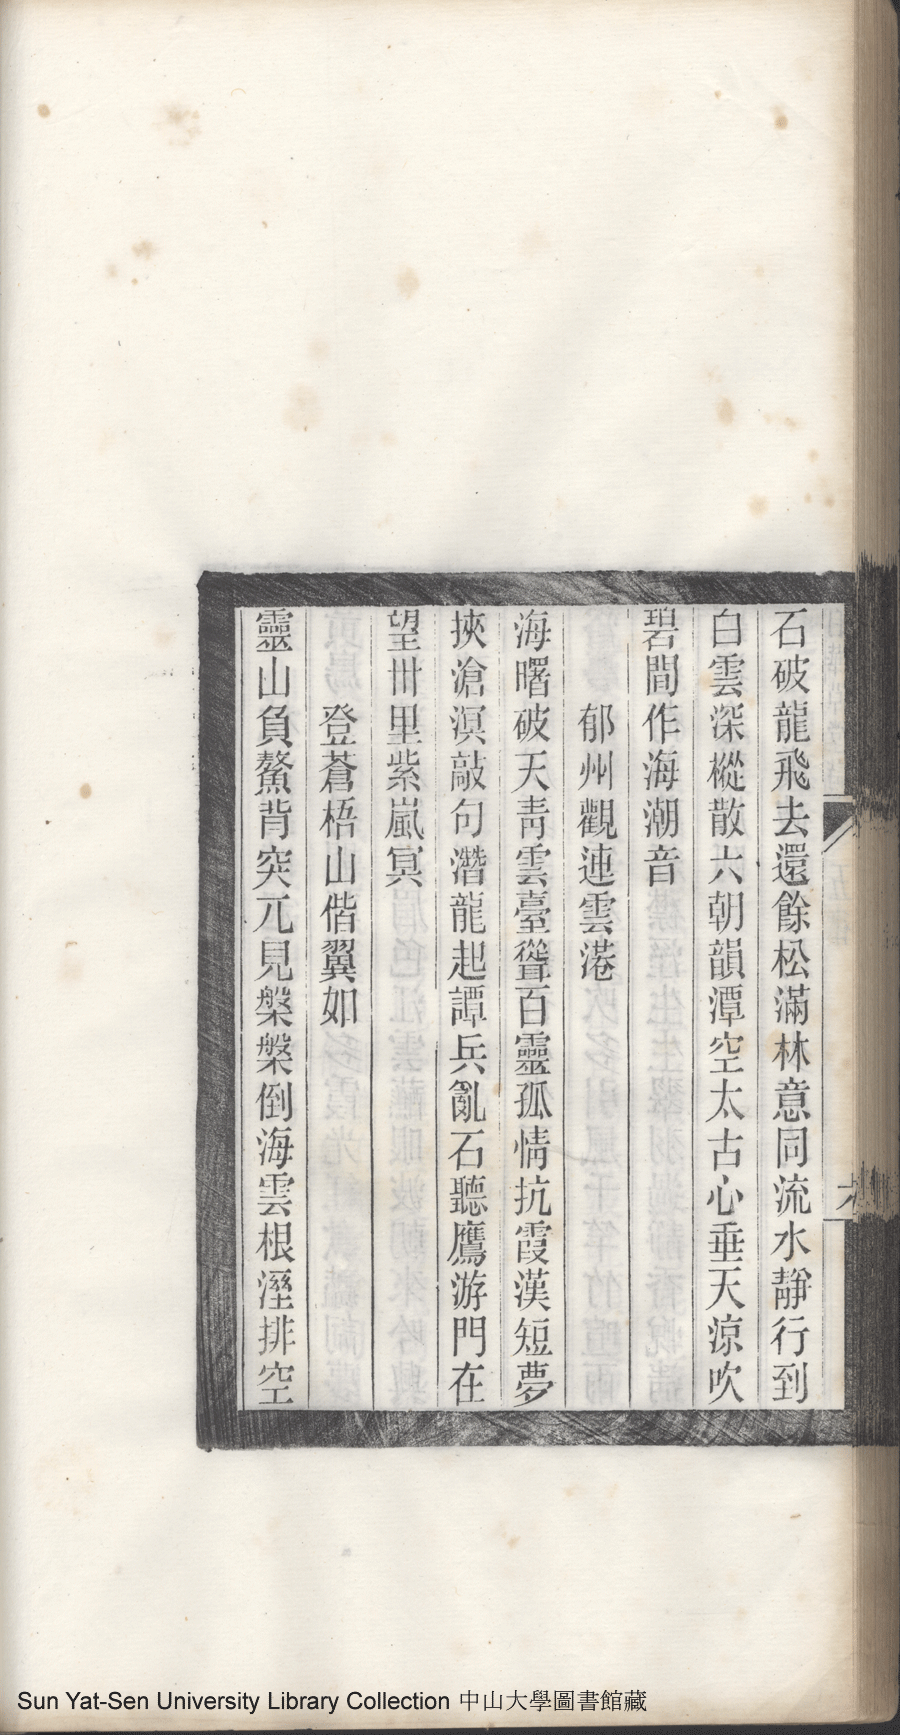 石破龍飛去還餘松滿林意同流水靜行到
白雲深樅散六朝韻潭空太古心垂天涼吹
碧間作海潮音
郁州觀連雲港
海曙破天靑雲臺聳百靈孤情抗霞漢短夢
挾滄溟敲句潛龍起譚兵亂石聽鷹游門在
望卅里紫嵐冥
登蒼梧山偕翼如
靈山負鰲背突兀見槃槃倒海雲根溼排空
Sun Yat-Sen University Library Collection 中山大學圖書館藏